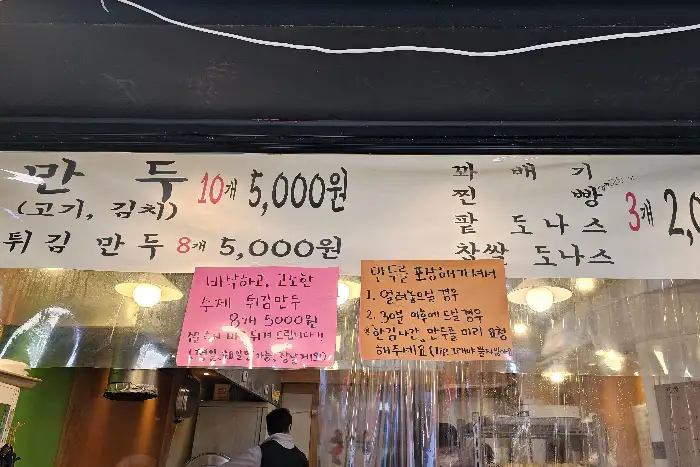 만 두 10개 5,000원
(고기, 김치)
튀김 만두 8개 5,000원
꽈 배 기
찐 빵
팥 도 나 스 3개
찹쌀 도나스
바삭하고, 고소한
수제 튀김만두
8개 5000원
바로 튀겨 드립니다!!
만두를 포장해가셔서
1. 얼려놓으실 경우
2. 30분 이후에 드실 경우
한김나간, 만두를 미리 요청
해주세요